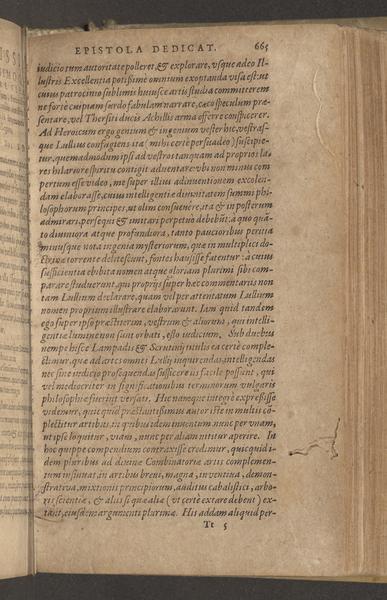 EPISTOLA DEDICAT. 665
iudicio tum autoritate polleret, & explorare, vsque adeo Il-
lustris Excellentia potißimè omnium exoptanda visa est: vt
cuius patrocinio sublimis huiusce artis studia committerem
ne fortè cuipiam surdo fabulam narrare, cæco speculum præ-
sentare, vel Thersiti ducis Achillis arma offerre conspicerer.
Ad Heroicum ergo genium & ingenium vester hic, vestras-
que Lullius confugiens ita (mihi certè persuadeo) suscipie-
tur, quemadmodum ipsi ad vestros tanquam ad proprios la-
res hilariore spiritu contigit aduentare: vbi non minus com
pertum esse video, me super illius adinuentionem excolen-
dam elaborasse, cuius intelligentiæ diuinitatem summi phi-
losophorum principes, vt olim consueuêre, ita & in posterum
admirari, persequi & imitari perpetuò debebũt: à quo quã-
to diuiniora atque profundiora, tanto paucioribus peruia
minusque nota ingenia mysteriorum, quæ in multiplici do-
ctrinæ torrente delitescunt, fontes hausisse fatentur: à cuius
sufficientia ebibita nomen atque gloriam plurimi sibi com-
parare studuerunt, qui proprijs super hæc commentarijs non
tam Lullium declarare, quam vel per attentatum Lullium
nomen proprium illustrare elaborarunt. Iam quid tandem
ego super ipso præstiterim, vestrum & aliorum, qui intelli-
gentiæ lumine non sunt orbati, esto iudicium. Sub duobus
nempe hisce Lampadis & Scrutinij titulis ea certè comple-
ctimur, quæ ad artes omnes Lullij inquirendas, intelligendas
nec sine iudicio prosequendas sufficere ijs facilè possunt, qui
vel mediocriter in significationibus terminorum vulgaris
philosophiæ fuerint versati. Hic nanque integrè expreßisse
videmur, quicquid præstantißimus autor iste in multis cō-
plectitur artibus, in quibus idem inuentum nunc per vnam,
vt ipse loquitur, viam, nunc per aliam nititur aperire. In
hoc quippe compendium contraxisse credimur, quicquid i-
dem pluribus ad diuinæ Combinatoriæ artis complemen-
tum insinuat, in artibus breui, magna, inuentiua, demon-
stratiua, mixtionis principiorum, auditus cabalistici, arbo-
ris scientiæ, & alijs si quæ aliæ (vt certè extare debent) ex-
tant, eiusdem argumenti plurimæ. His addam aliquid per-
Tt 5